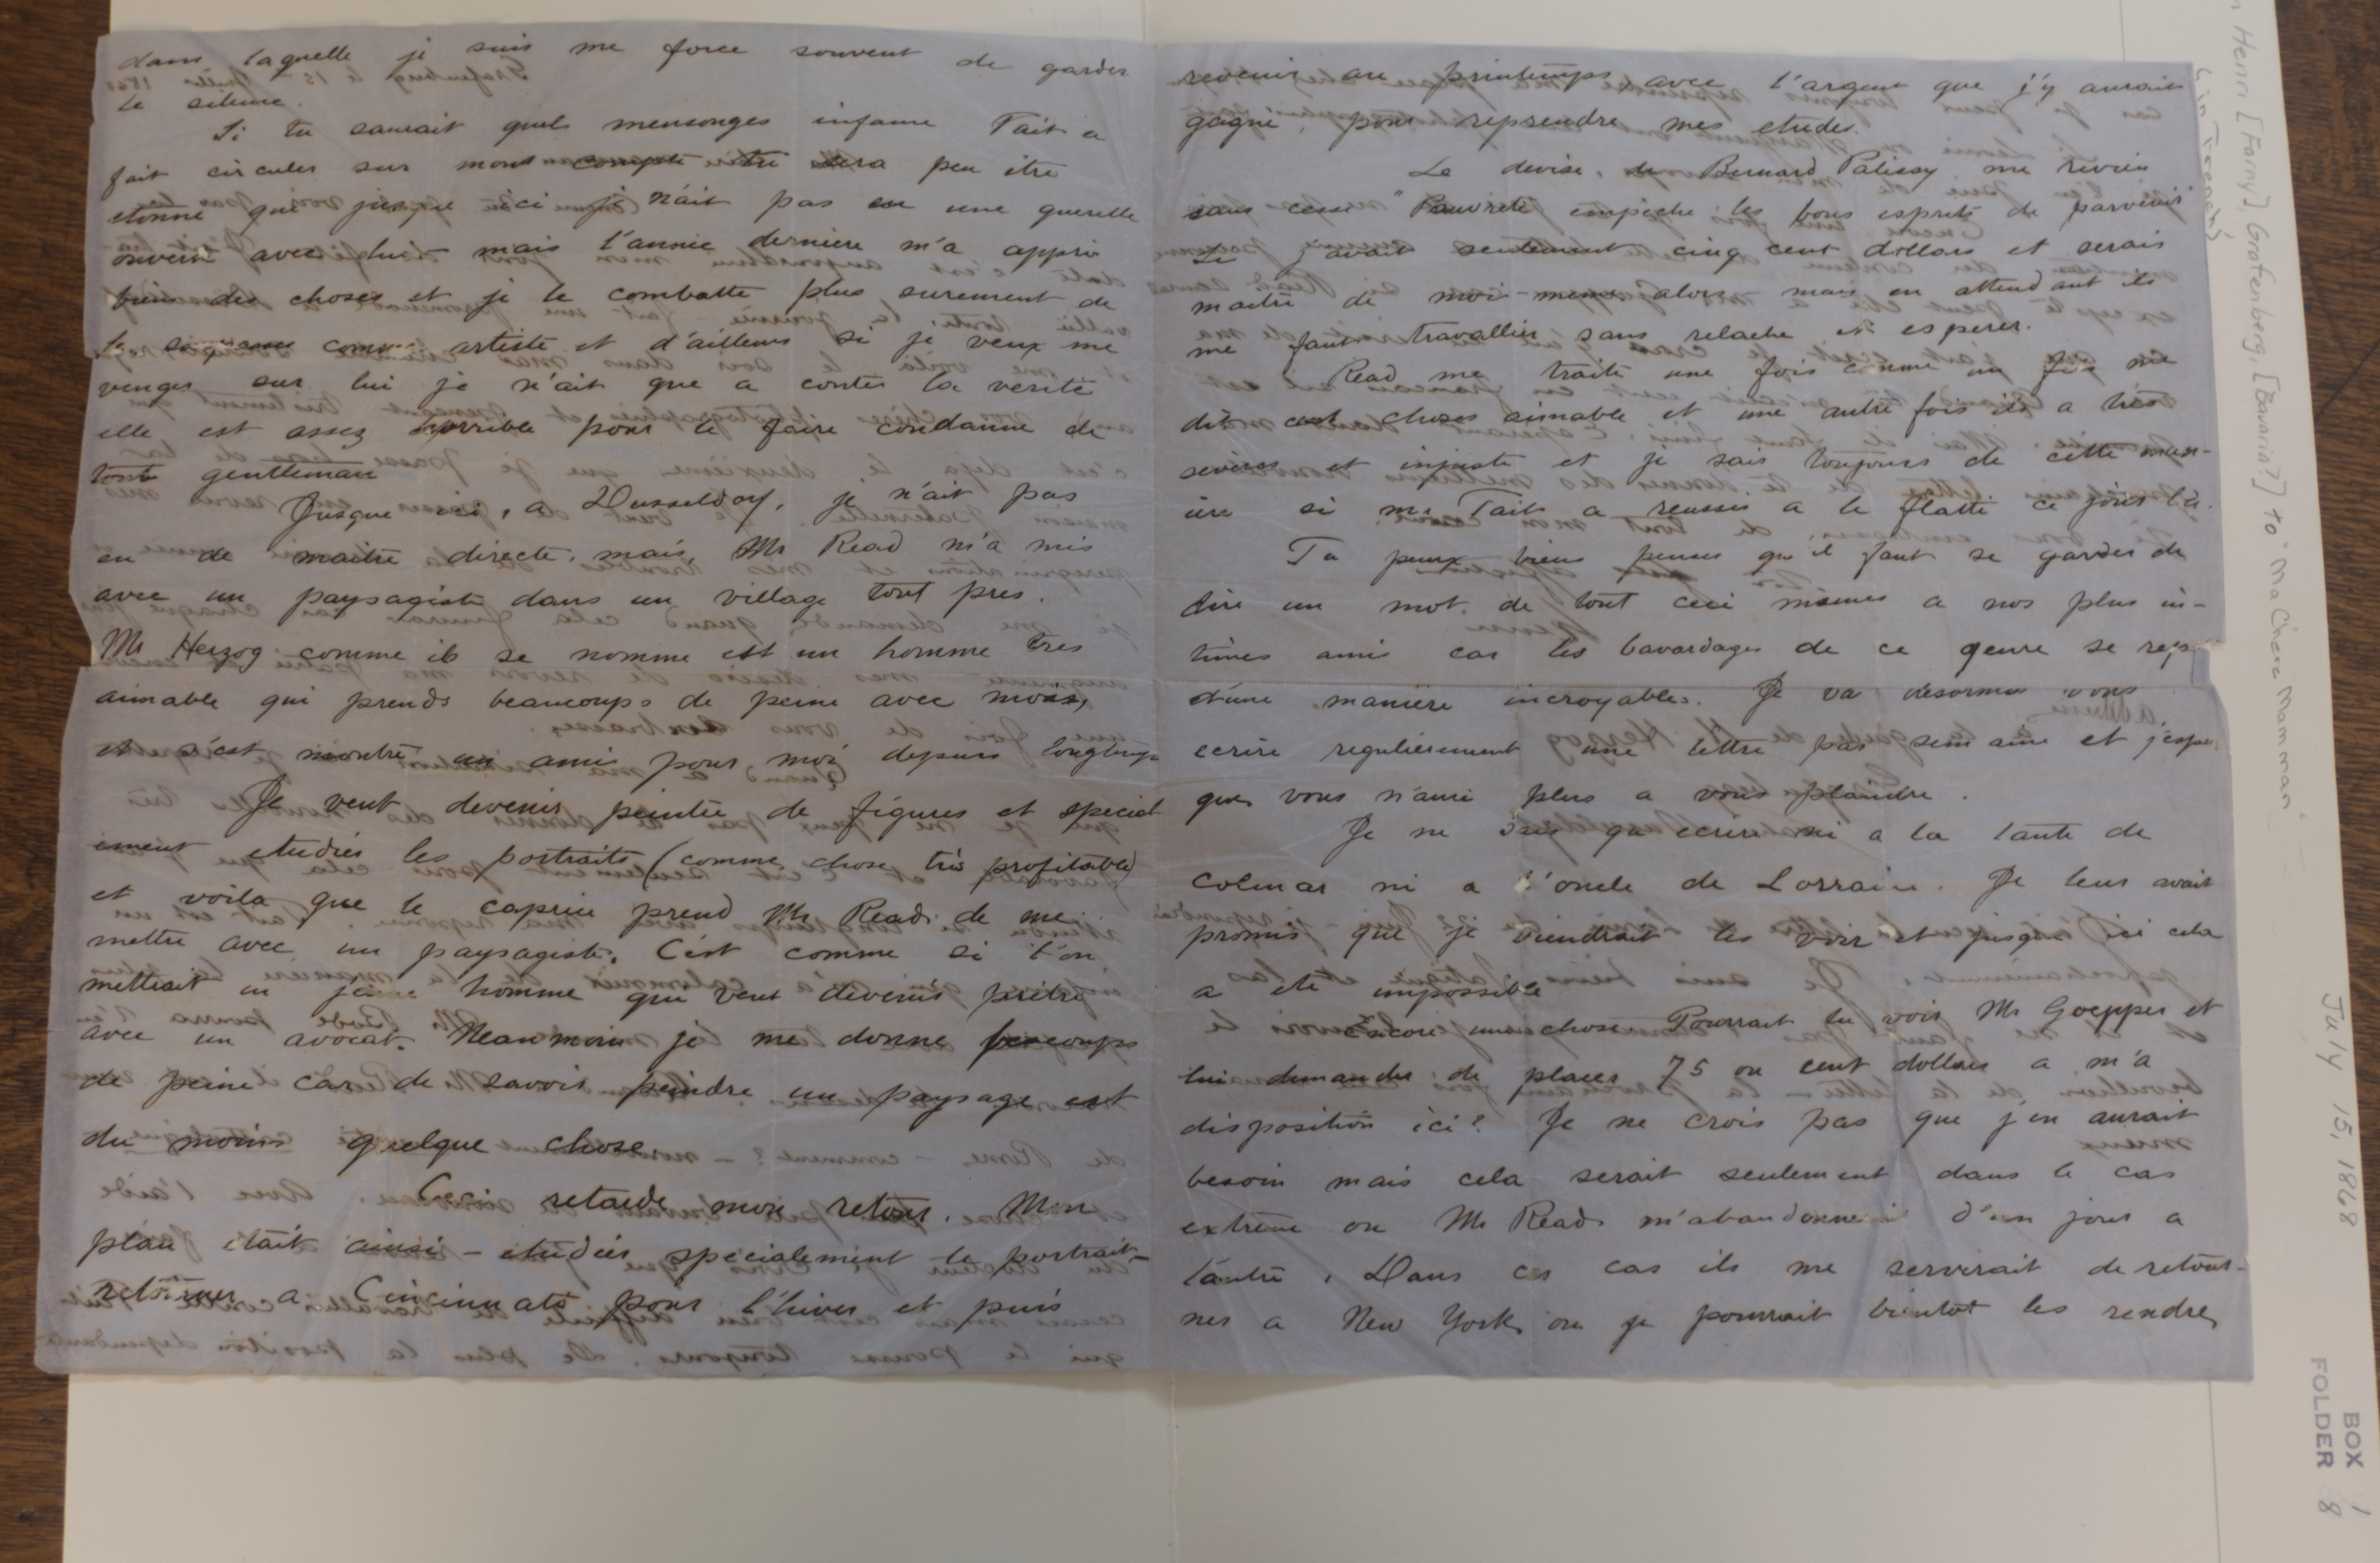 dans laquelle je suis me force souvent de garder
le silence.
Si tu saurait quels mensonges infame Tait a
fait circuler sur mont compte tu sera peu être
etonné que jusque ici je n'ait pas eu une querelle
ouverte avec lui mais l'année derniere m'a appri
bien des choses et je le combatte plus surement de
le comme artiste et d'ailleurs si je veux me
venger sur lui je n'ait que a conter la verité
elle est assez horrible pour le faire condanné de
tout gentleman
Jusque ici, a Dusseldorf, je n'ait pas
eu de maitre directe, mais, Mr Read m'a mis
avec un paysagiste dans un village tout pres.
Mr Herzog comme il se nomme est un homme tres
aimable qui prends beaucoups de peine avec moi,
et s'est montré un ami pour moi depuis longtemps
Je veut devenir peintre de figures et special
ement etudier les portraits (comme chose très profitable)
et voila que le caprice prend Mr Read de me
mettre avec un paysagiste. C'est comme si l'on
mettrait un jeune homme qui veut devenir prêtre
avec un avocat. Neanmoin je me donne beaucoups
de peine car de savoir peindre un paysage est
du moins quelque chose.
Ceci retarde mon retour. Mon
plan etait ainsi – etudier specialement le portrait –
retourner a Cincinnati pour l'hiver et puis
revenir au printemps avec l'argent que j'y aurait
gagné pour reprendre mes etudes.
La devise de Bernard Palissy me revien
sans cesse "Pauvreté empeche les bons esprits de parvenir"
Si j'avait seulement cinq cent dollars et serais
maitre de moi-meme alors mais en attendant ils
me faut travailler sans relache et esperer.
Read me traite une fois comme un fils me
dit cent choses aimable et une autre fois ils a tres
severes et injuste et je sais toujours de cette man-
iere si Mr Tait a reussi a le flatté ce jour là.
Tu peux bien penser qu'il faut se garder de
dire un mot de tout ceci mêmes a nos plus in-
times amis car les bavardages de ce genre se
d'une manière incroyables. Je va désormais vous
ecrire regulièrement une lettre pas semaine et j'espe
que vous n'auré plus a vous plaindre.
Je ne sais qu'ecrire ni a la tante de
Colmar ni a l'oncle de Lorraine. Je leur avait
promis que je viendrait les voir et jusque ici cela
a eté impossible
Encore une chose Pourrait tu voir Mr Goepper et
lui demander de placer 75 ou cent dollars a m'a
disposition ici? Je ne crois pas que j'en aurait
besoin mais cela serait seulement dans le cas
extrême ou Mr Read m'abandonnerait d'un jour a
l'autre. Dans ces cas ils me servirait de retour-
ner a New York ou je pourrait bientot les rendre
Henri [Farny], Grafenberg, [Bavaria?] to "Ma Chere Mamman"
(in French)
July 15, 1868
BOX 1
FOLDER 8